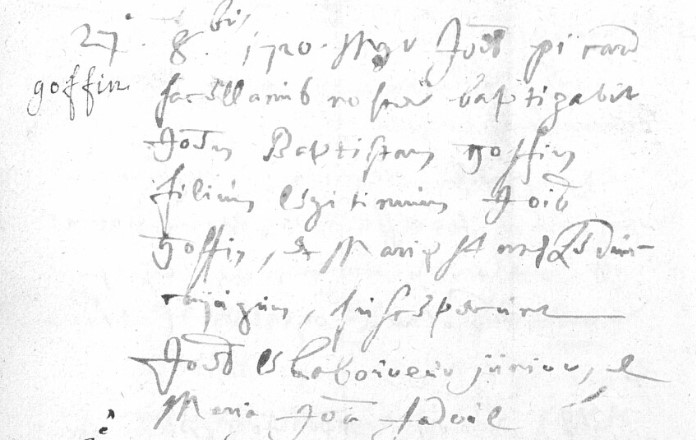 27 8bris 1720 Mgr Joes picard
goffin
sacellanus noster baptizavit
Joem Baptistam goffin
filium legitimum Jois
goffin, et Mariæ
conjugum, susceperunt
Joes junior, et
Maria Joa